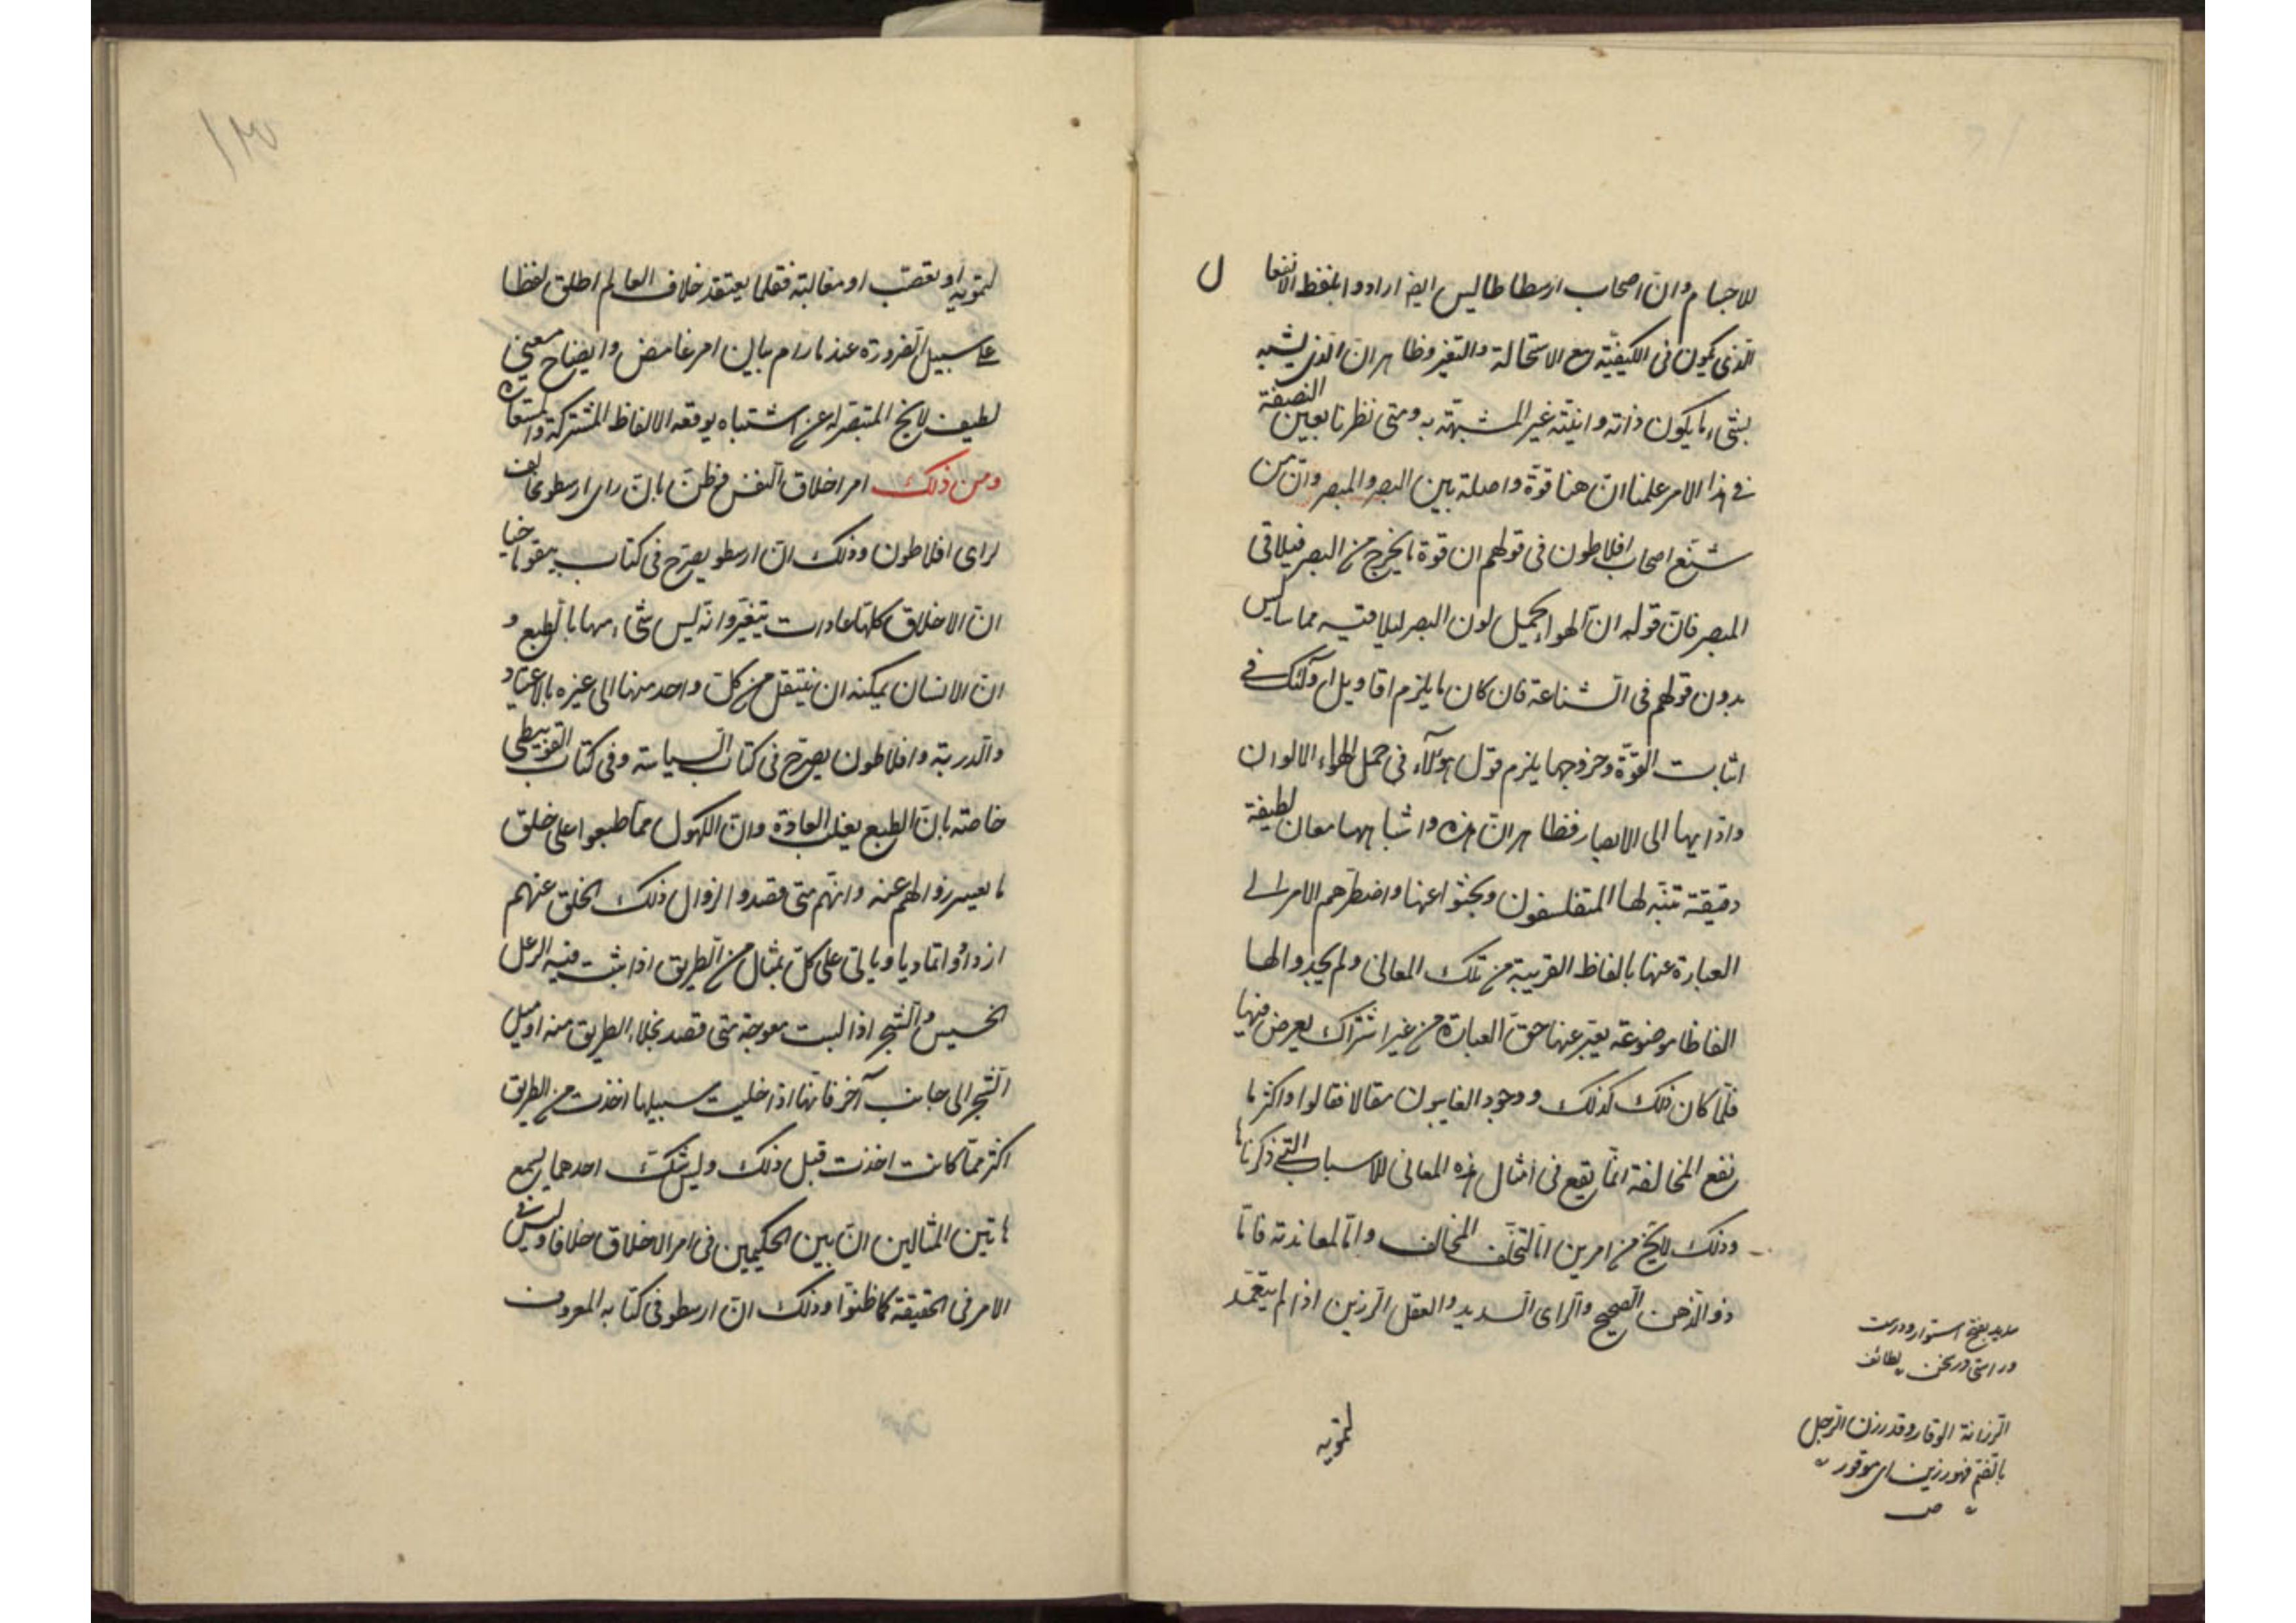 للاجسام وان اصحاب ارسطاطاليس ايضا ارادوا بلفظ الانفعال
الذى يكون فى الكيفية مع الاستحالة والتغير وظاهر ان الذى يشبه
بشىء ما يكون ذاته وانيته غير المشبهة به ومتى نظرنا بعين النصفة
فى هذا الامر علمنا ان هنا قوة واصلة بين البصر والمبصر وان من
شنع اصحاب افلاطون فى قولهم ان قوة ما يخرج من البصر فيلاقى
المبصر فان قوله ان الهواء يحمل لون البصر ليلاقيه مماسا ليس
بدون قولهم فى الشناعة فان كان ما يلزم اقاويل اولئك فى
اثبات القوة وخروجها يلزم قول هؤلاء فى حمل الهواء الالوان
واذايها الى الابصار فظاهر ان هذه واشباهها معان لطيفة
دقيقة تنبه لها المتفلسفون وبحثوا عنها واضطرهم الامر الى
العبارة عنها بالفاظ القريبة من تلك المعانى ولم يجدوا لها
الفاظا موضوعة يعبر عنها حق العبارة من غير اشتراك يعرض فيها
فلما كان ذلك كذلك ووجود العايبون مقالا فقالوا واكثر ما
نقع المخالفة انما يقع فى امثال هذه المعانى للاسباب التى ذكرناها
وذلك لا يخ من امرين اما لتخلف المخالف واما لمعاندته فاما
ذو الذهن الصحيح والراى السديد والعقل الرزين اذا لم يتعمد
سديد بفتح استوار ودرست
وراستى در سخن لطائف
الرزانة الوقار وقد رزن الرجل
بالضم فهو رزين اى موقور
ص
لتمويه
۱۳
لتمويه او تعصب او مغالبة فقلما يعتقد خلاف العالم اطلق لفظا
على سبيل الضرورة عند ما رام بيان امر غامض وايضاح معنى
لطيف لا يخ المتبصر له عن اشتباه يوقعه الالفاظ المشتركة والمستعارة
ومن ذلك امر اخلاق النفس وظن بان راى ارسطو يخالف
لراى افلاطون وذلك ان ارسطو يصرح فى كتاب نيقوماخيا
ان الاخلاق كلها عادات يتغير وانه ليس شىء منها بالطبع و
ان الانسان يمكنه ان ينتقل من كل واحد منها الى غيره بالاعتياد
والدربة وافلاطون يصرح فى كتاب السياسة وفى كتاب
خاصة بان الطبع يغلب العادة وان الكهول مما طبعوا على خلق
ما يعسر زوالهم عنه وانهم متى قصدوا لزوال ذلك الخلق عنهم
ازدادوا تماديا وياتى على كل بمثال من الطريق اذا نبت فيه الدغل
الحسيس والشجر اذا لبت معوجة متى قصد بخلاء الطريق منه او ميل
الشجر الى جانب آخر فانها اذا خليت سبيلها اخذت من الطريق
اكثر مما كانت اخذت قبل ذلك وليس شك احدهما يسمع
هاتين المثالين ان بين الحكيمين فى امر الاخلاق خلافا وليس
الامر فى الحقيقة كما ظنوا وذلك ان ارسطو فى كتابه المعروف